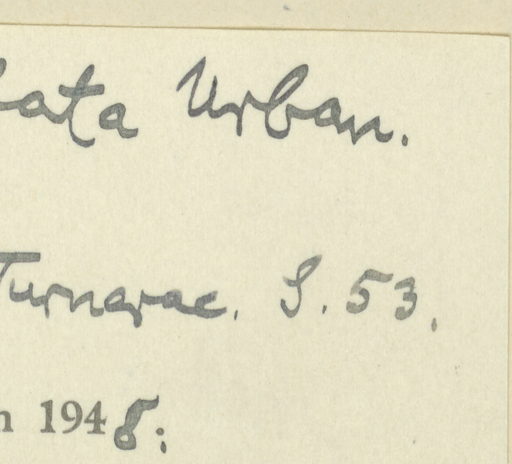 bata Urban.
Turnerac. S. 53.
n 1948.